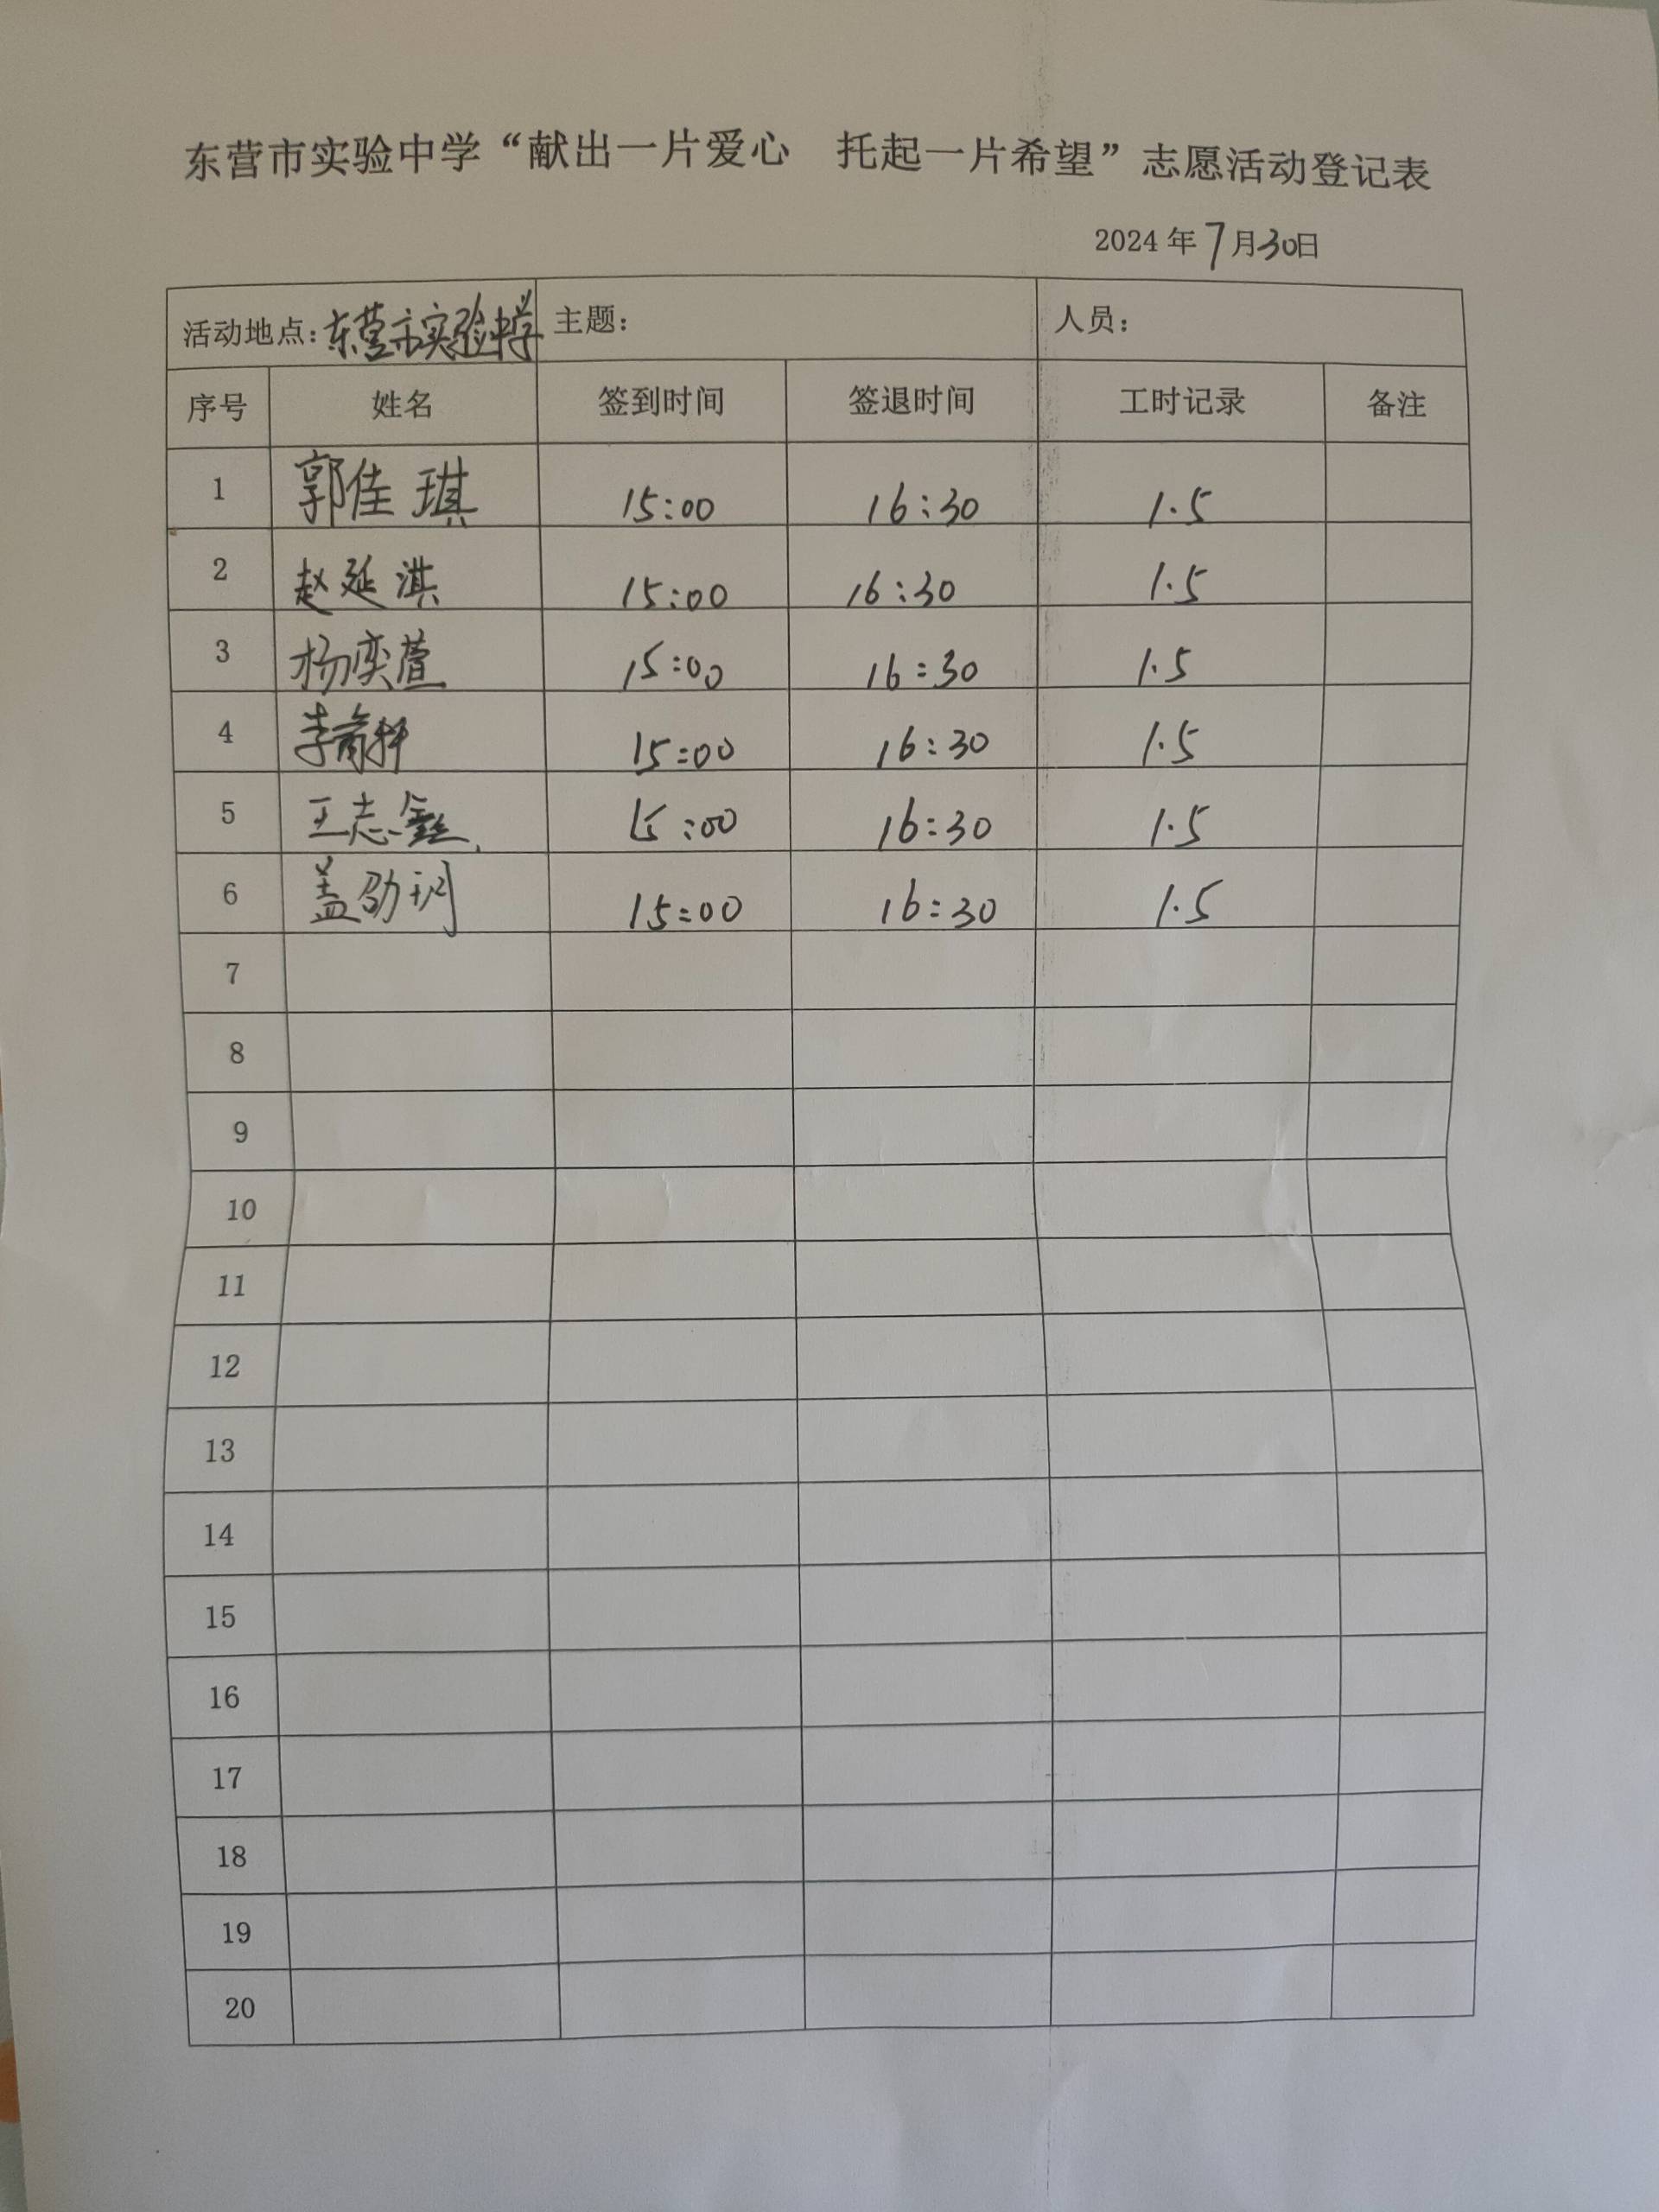 东营市实验中学“献出一片爱心 托起一片希望”志愿活动登记表
2024年7月30日
活动地点:东营市实验中学 主题: 人员:
序号 姓名 签到时间 签退时间 工时记录 备注
1 郭佳琪 15:00 16:30 1.5
2 赵延淇 15:00 16:30 1.5
3 杨奕萱 15:00 16:30 1.5
4 李 15:00 16:30 1.5
5 王志鑫 15:00 16:30 1.5
6 盖劭珂 15:00 16:30 1.5
7
8
9
10
11
12
13
14
15
16
17
18
19
20